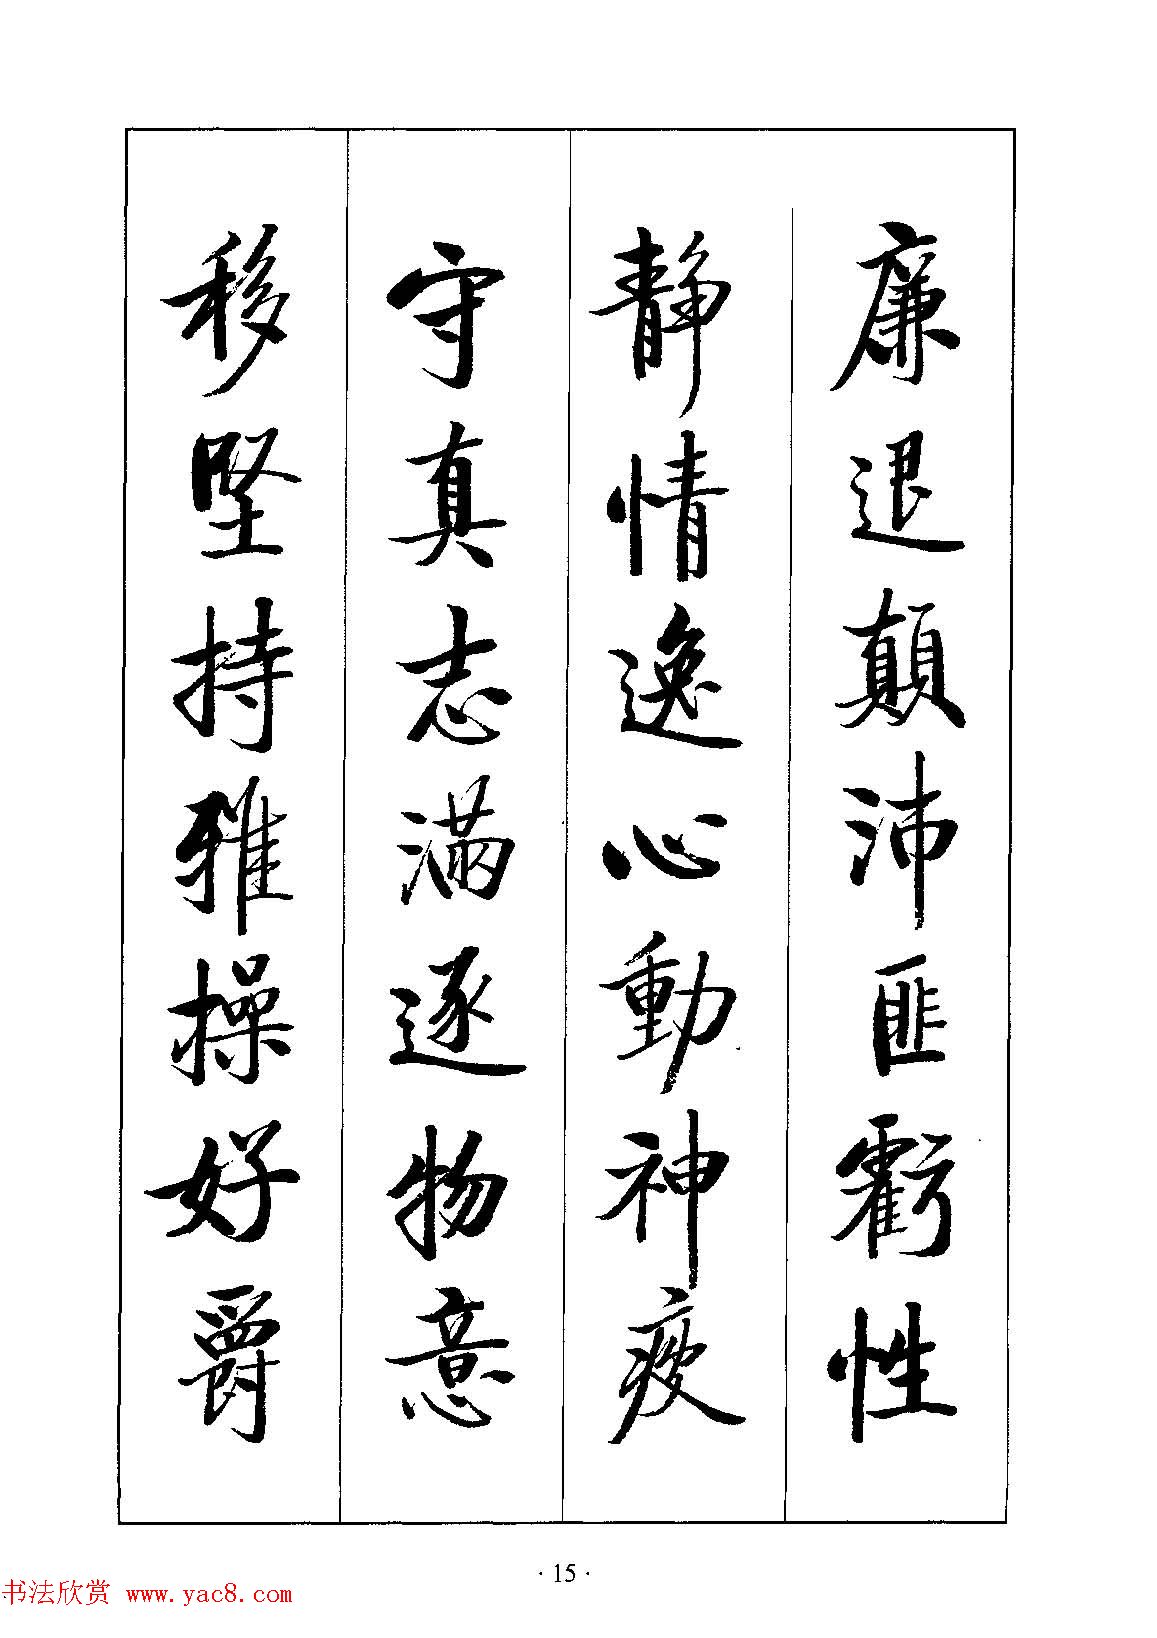 廉退顛沛匪虧性
靜情逸心動神疲
守真志滿逐物意
移堅持雅操好爵
·15·
书法欣赏 www.yac8.com